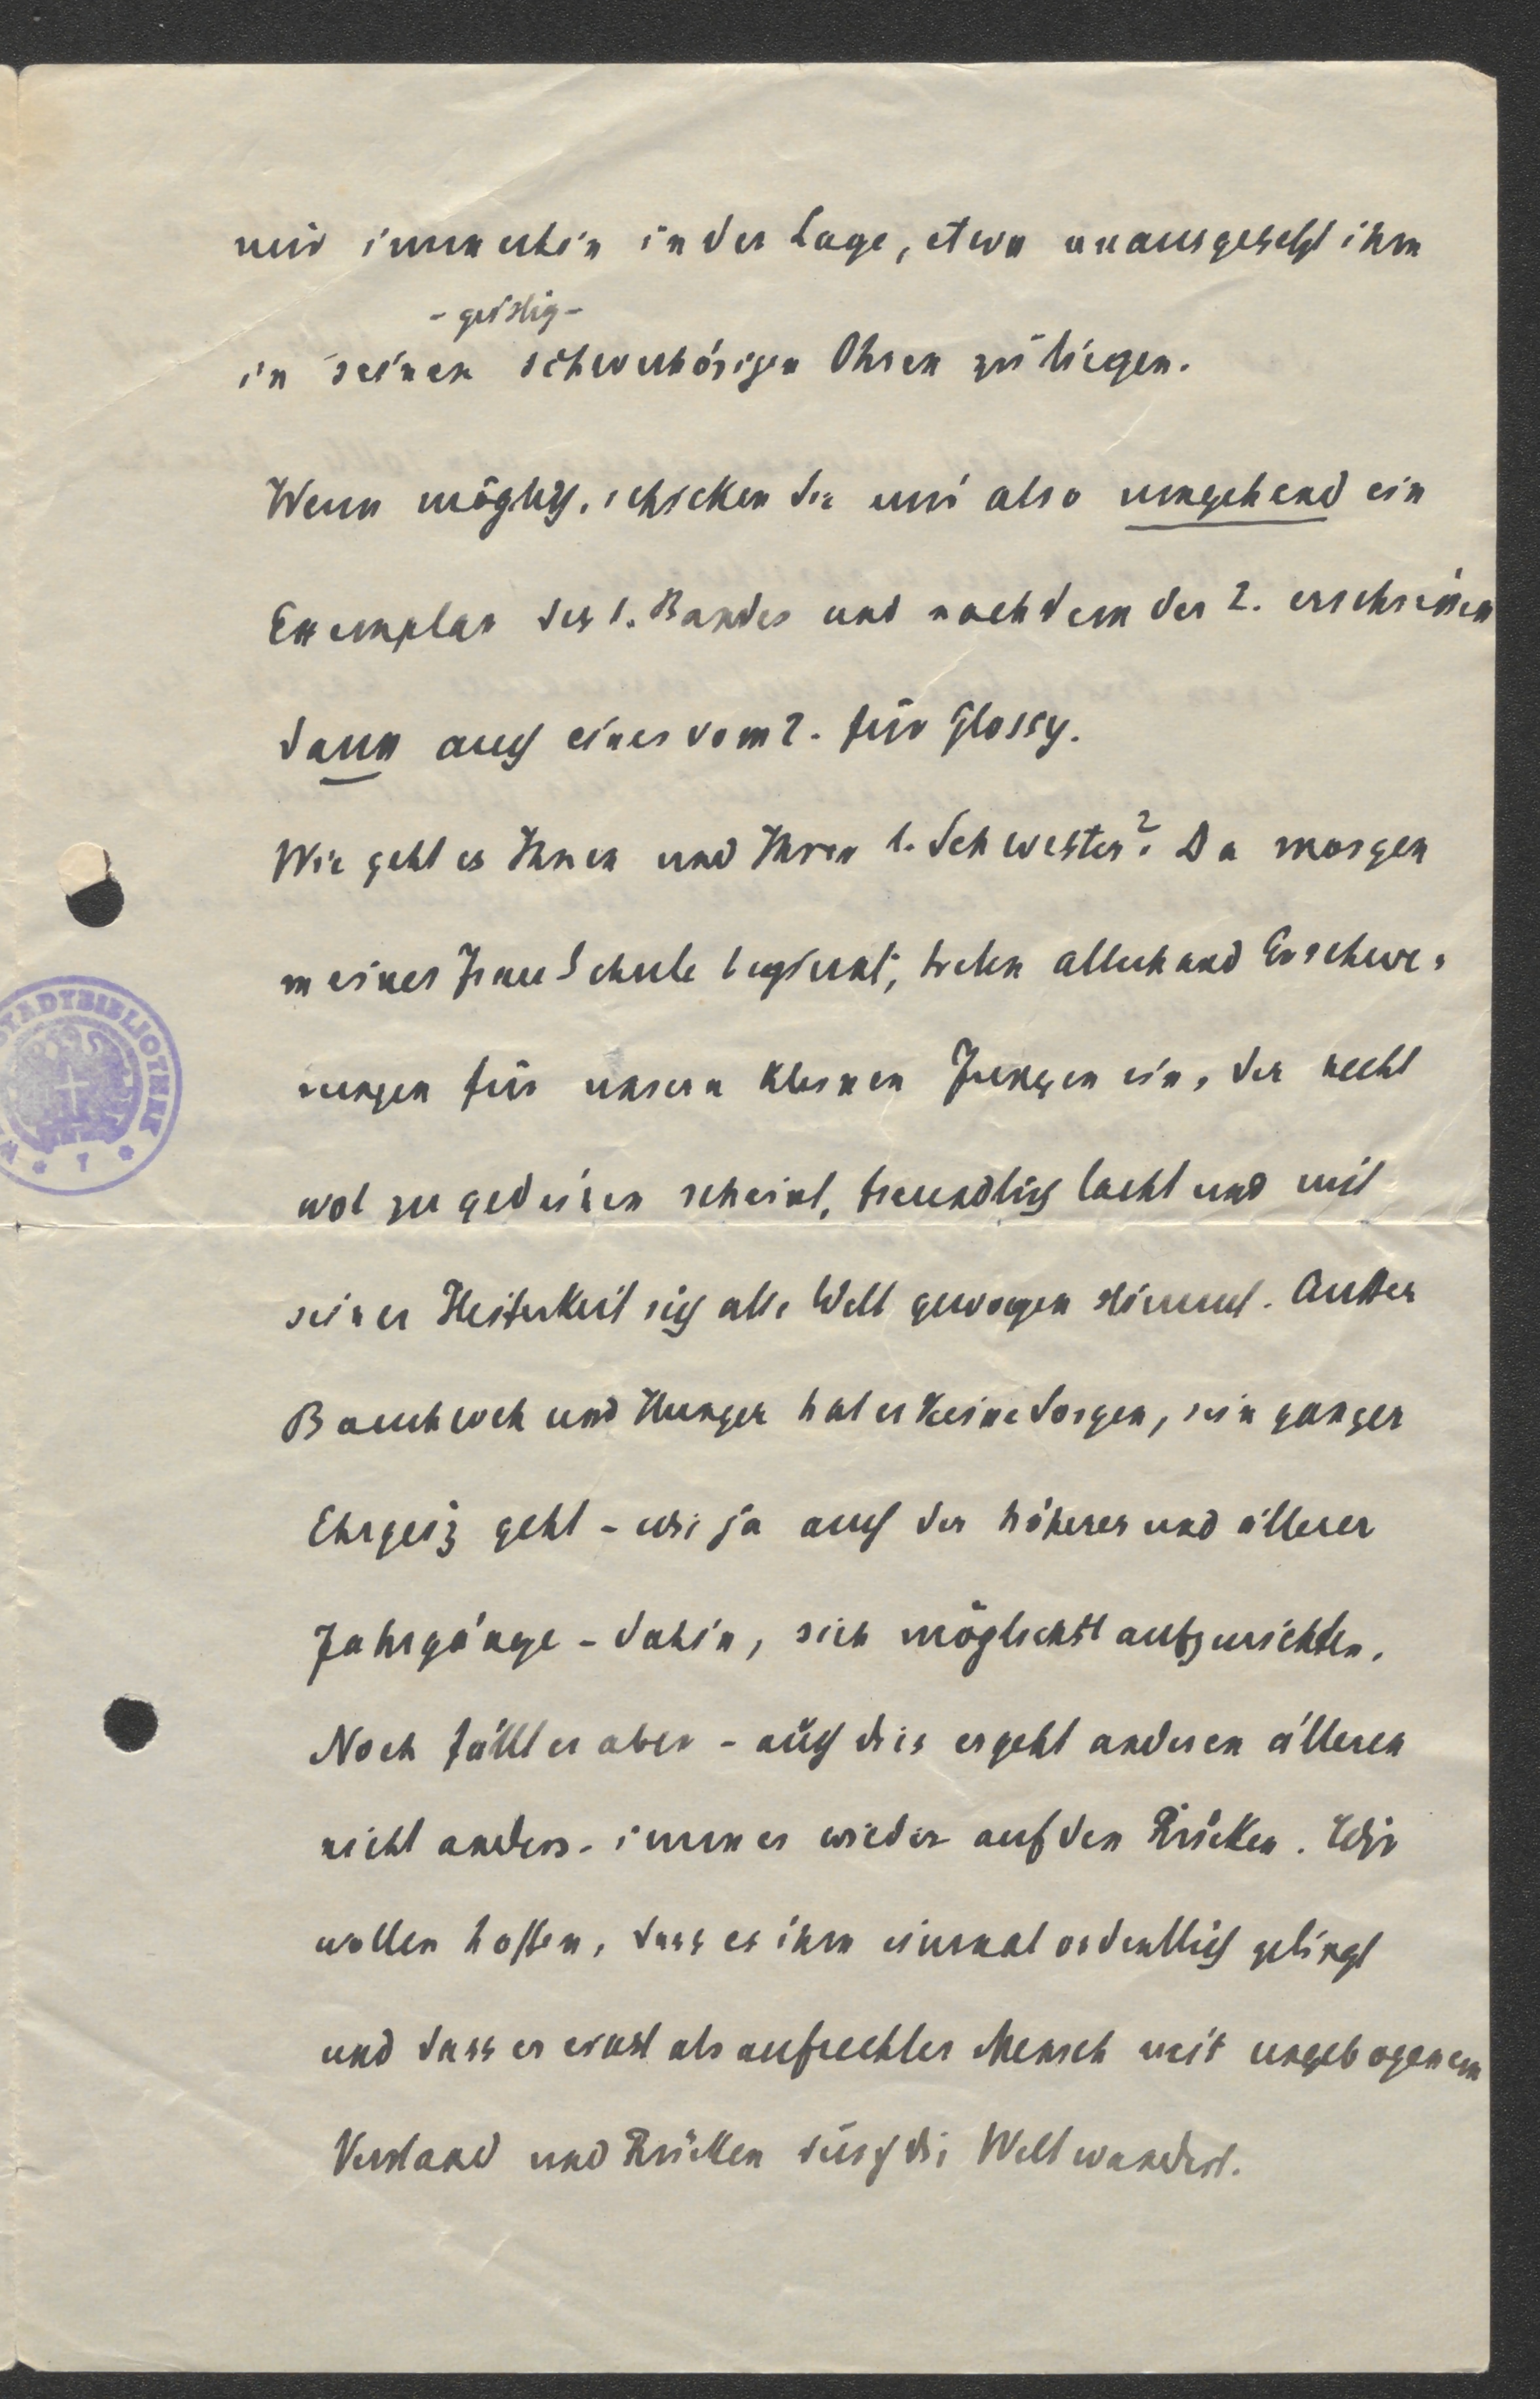 mir immerhin in der Lage, etwa unausgesetzt ihm
- geistig -
in seinen schwerhörigen Ohren zu liegen.
Wenn möglich, schicken Sie mir also umgehend ein
Exemplar des 1. Bandes und nachdem der 2. erschienen
dann auch eines vom 2. für Glossy.
Wie geht es Ihnen und Ihrer l. Schwester? Da morgen
meiner Frau Schule beginnt, treten allerhand Erschwe-
rungen für unsern kleinen Jungen ein, der recht
wol zu gedeihen scheint, freundlich lacht und mit
seiner Heiterkeit sich alle Welt gewogen stimmt. Außer
Bauchweh und Hunger hat er keine Sorgen, sein ganzer
Ehrgeiz geht - wie ja auch der höherer und älterer
Jahrgänge - dahin, sich möglichst aufzurichten.
Noch fällt er aber - auch dies ergeht anderen älteren
nicht anders - immer wieder auf den Rücken. Wir
wollen hoffen, dass es ihm einmal ordentlich gelingt
und dass er einst als aufrechter Mensch mit ungebogenem
Verstand und Rücken durch die Welt wandert.
STADTBIBLIOTHEK